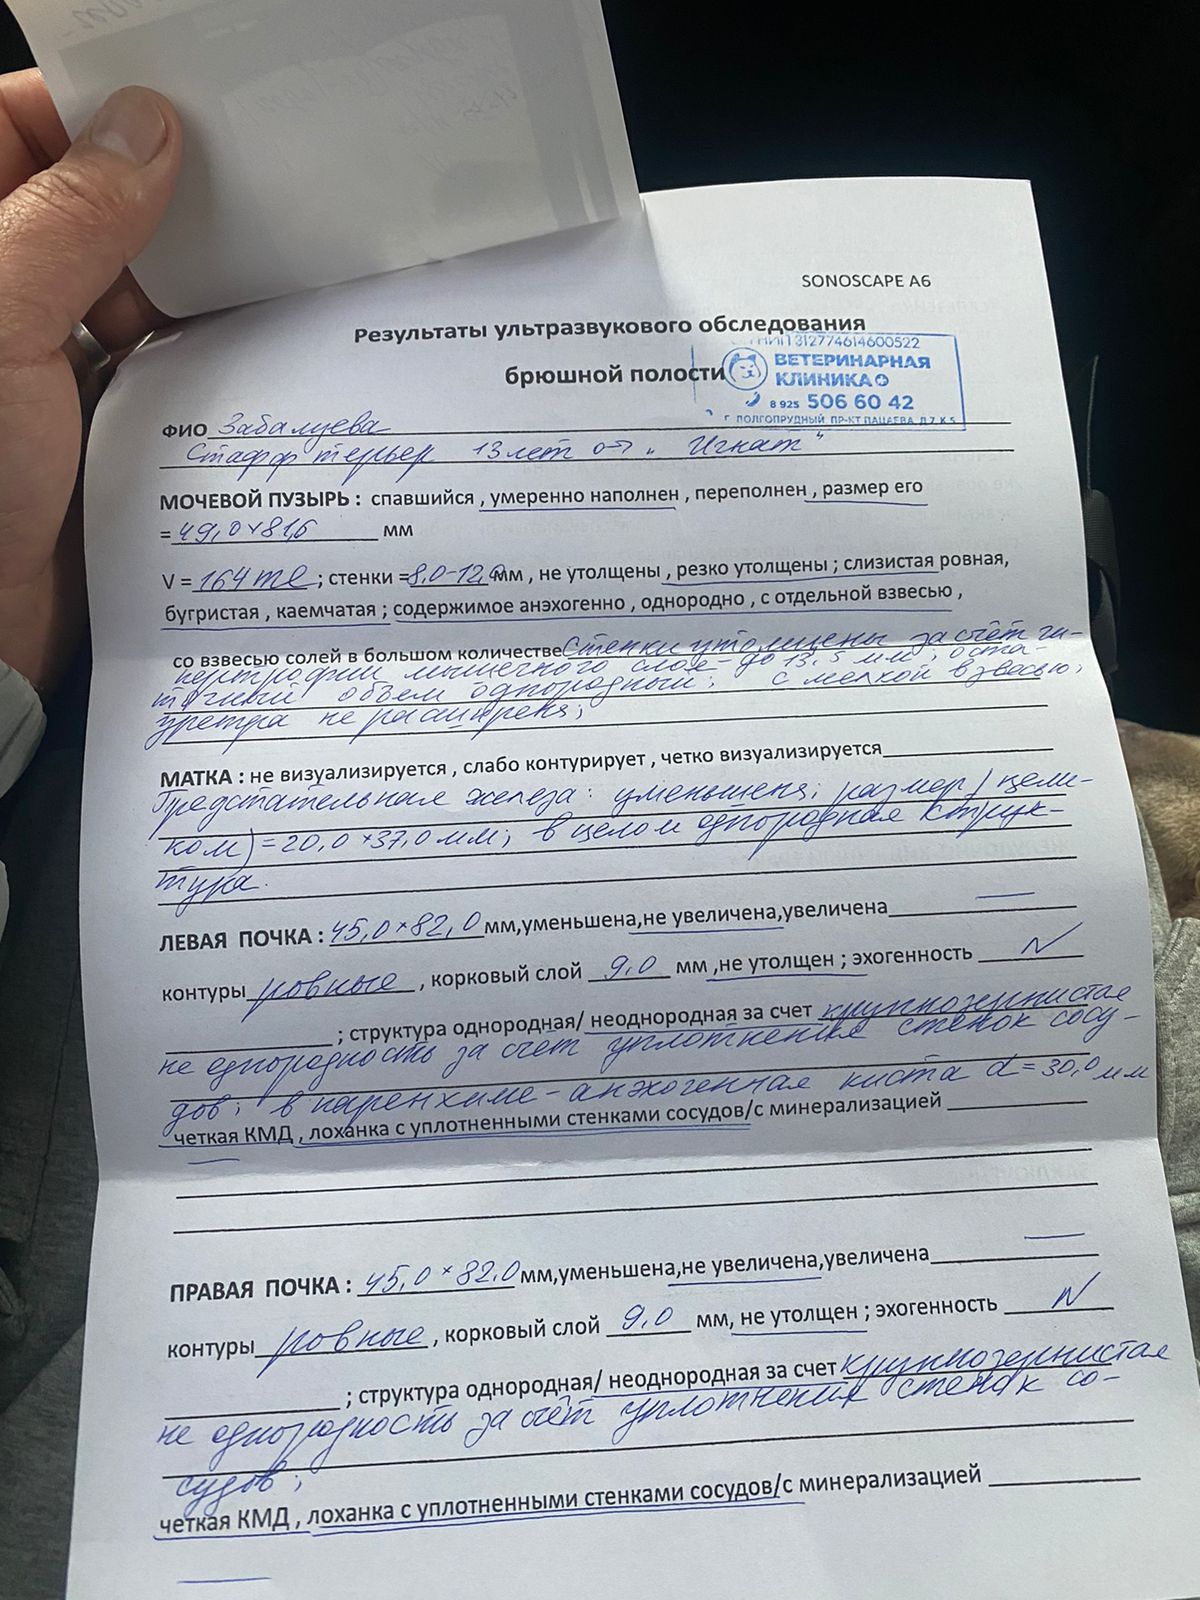 SONOSCAPE A6
Результаты ультразвукового обследования
брюшной полости
ИП 312774614600522
ВЕТЕРИНАРНАЯ
КЛИНИКА
8 925 506 60 42
Г. ДОЛГОПРУДНЫЙ ПР-КТ ПАЦАЕВА Д.7 К.5
ФИО Забалуева
Стафф терьер 13 лет "Игнат"
МОЧЕВОЙ ПУЗЫРЬ : спавшийся , умеренно наполнен , переполнен , размер его
= 49,0×81,6 мм
V = 164 ml ; стенки =8,0-12,0 мм , не утолщены , резко утолщены ; слизистая ровная,
бугристая , каемчатая ; содержимое анэхогенно , однородно , с отдельной взвесью ,
со взвесью солей в большом количестве Стенки утолщены за счёт ги-
пертрофии мышечного слоя - до 13,5 мм; оста-
точный объем однородный; с мелкой взвесью;
уретра не расширена;
МАТКА : не визуализируется , слабо контурирует , четко визуализируется
Предстательная железа: уменьшена; размер (цели-
ком) = 20,0×37,0 мм; в целом однородная струк-
тура.
ЛЕВАЯ ПОЧКА : 45,0×82,0 мм,уменьшена,не увеличена,увеличена —
контуры ровные , корковый слой 9,0 мм ,не утолщен ; эхогенность N
; структура однородная/ неоднородная за счет крупнозернистая
не однородность за счёт уплотнения стенок сосу-
дов; в паренхиме - анэхогенная киста d = 30,0 мм
четкая КМД , лоханка с уплотненными стенками сосудов/с минерализацией
—
ПРАВАЯ ПОЧКА : 45,0×82,0 мм,уменьшена,не увеличена,увеличена —
контуры ровные , корковый слой 9,0 мм, не утолщен ; эхогенность N
; структура однородная/ неоднородная за счет крупнозернистая
не однородность за счёт уплотнения стенок со-
судов;
четкая КМД , лоханка с уплотненными стенками сосудов/с минерализацией
—